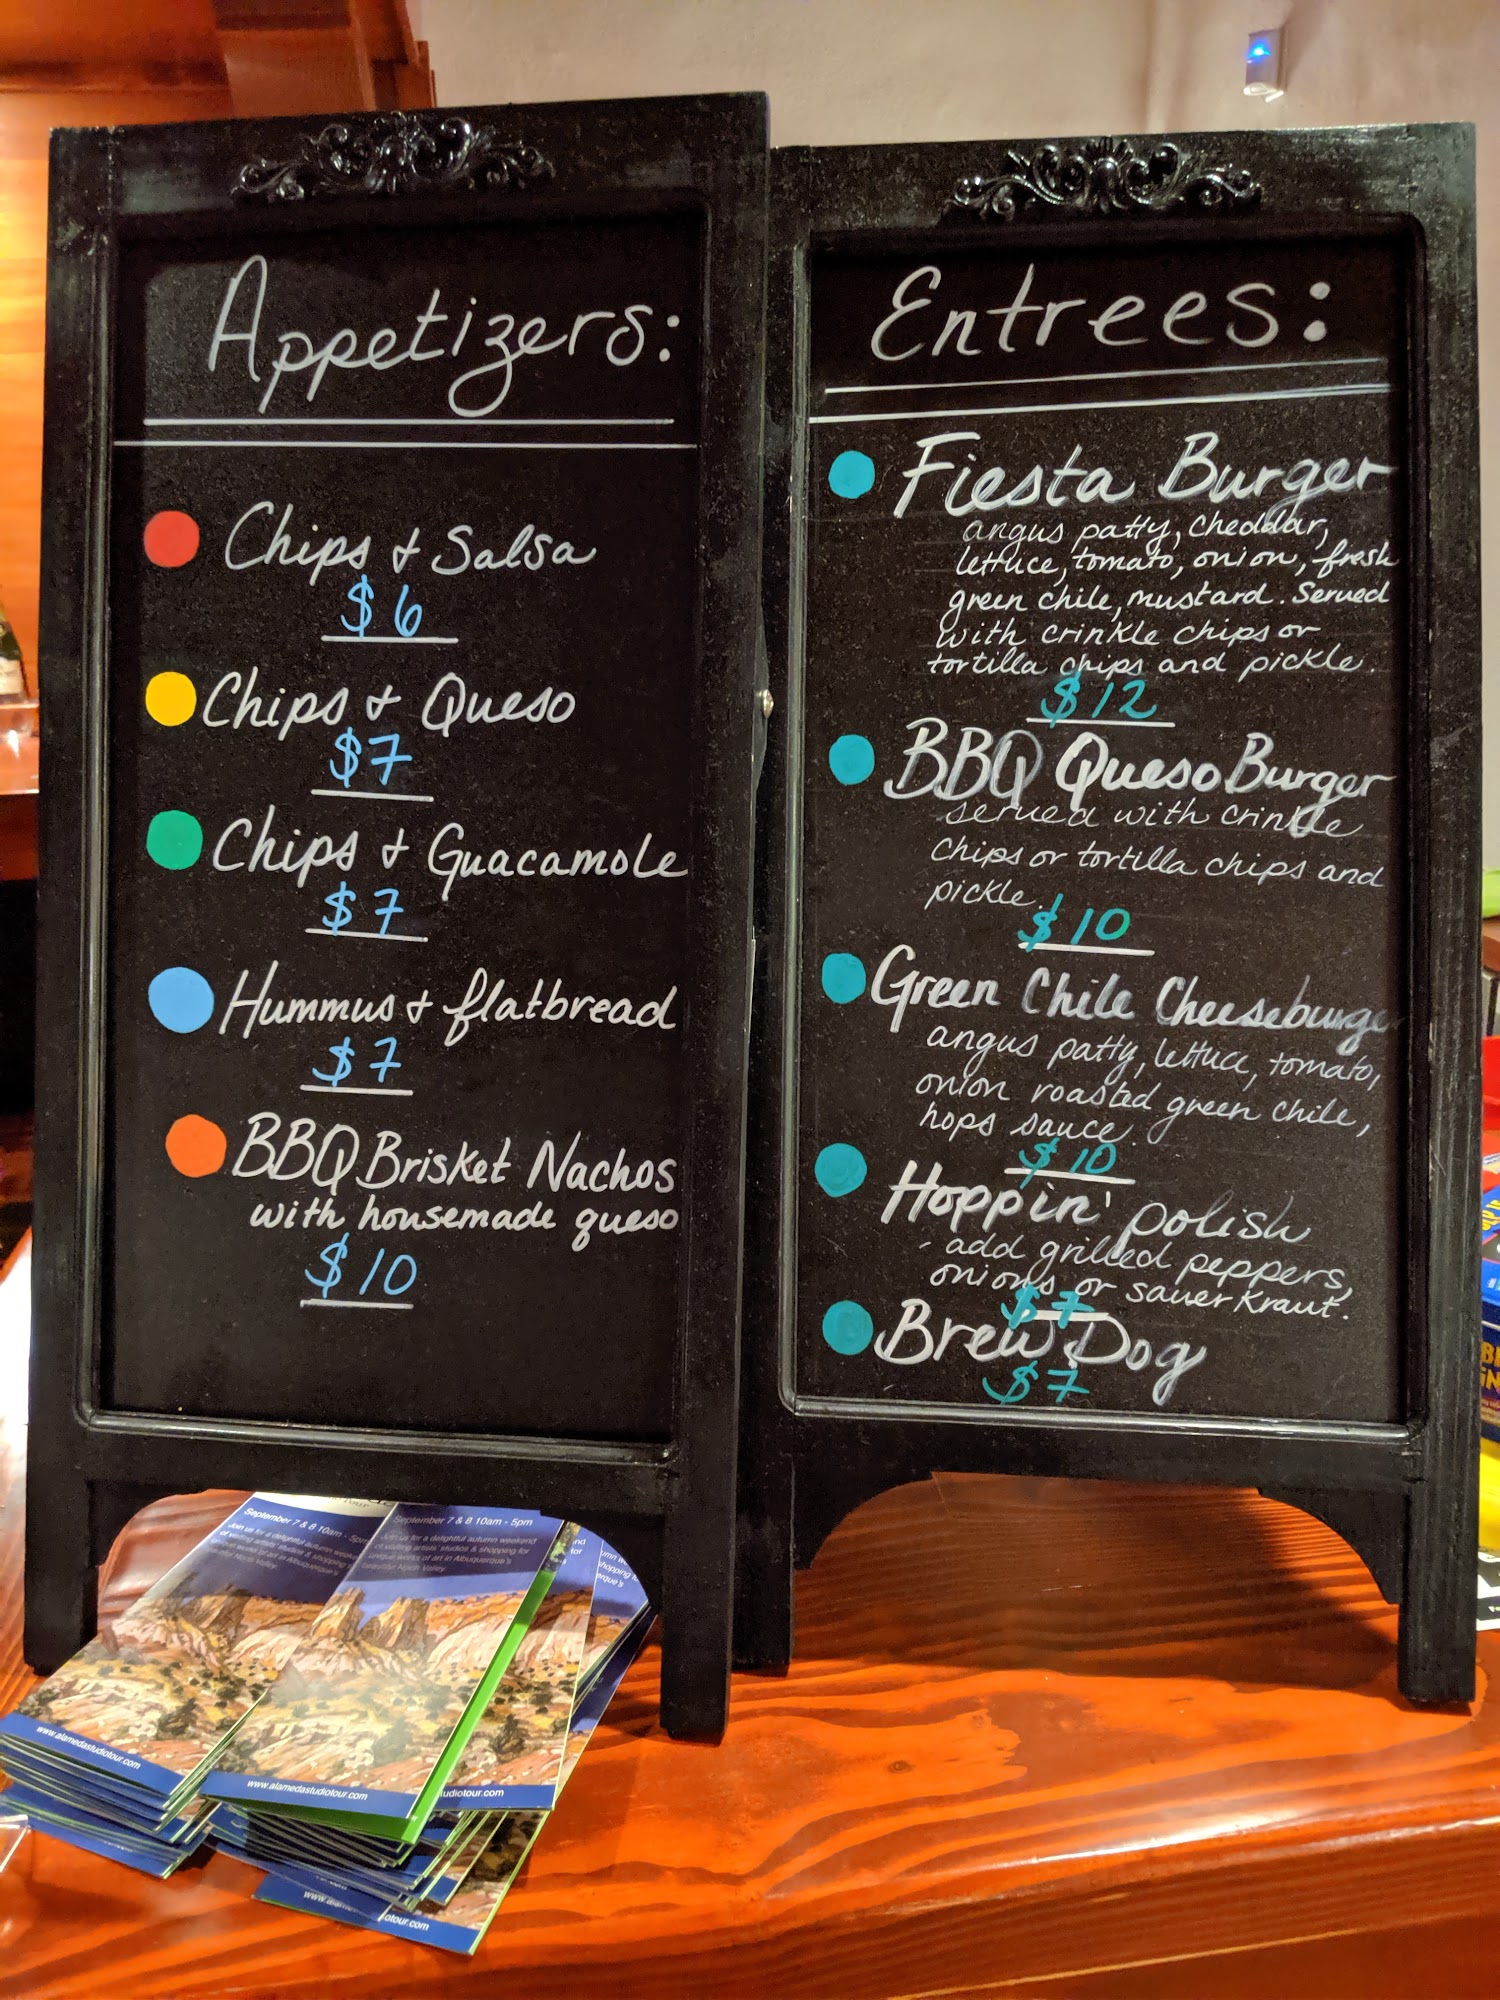 Appetizers:
Chips & Salsa
$6
Chips & Queso
$7
Chips & Guacamole
$7
Hummus & flatbread
$7
BBQ Brisket Nachos
with housemade queso
$10
Entrees:
Fiesta Burger
angus patty, cheddar,
lettuce, tomato, onion, fresh
green chile, mustard. Served
with crinkle chips or
tortilla chips and pickle.
$12
BBQ Queso Burger
served with crinkle
chips or tortilla chips and
pickle.
$10
Green Chile Cheeseburger
angus patty, lettuce, tomato,
onion roasted green chile,
hops sauce.
$10
Hoppin' polish
- add grilled peppers,
onions or sauerkraut.
$7
Brew Dog
$7
September 7 & 8 10am - 5pm
Join us for a delightful autumn weekend
of visiting artists' studios & shopping
www.alamedastudiotour.com
September 7 & 8 10am - 5pm
Join us for a delightful autumn weekend
of visiting artists' studios & shopping for
unique works of art in Albuquerque's
beautiful North Valley.
www.alamedastudiotour.com
udiotour.com
otour.com